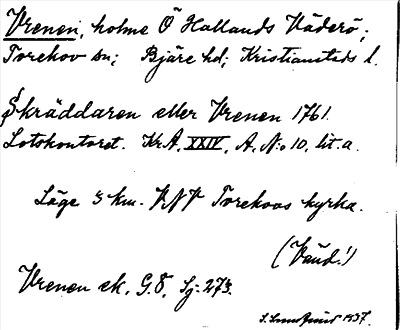 Vrenen, holme Ö Hallands Väderö;
Torekov sn; Bjäre hd; Kristianstads l.
Skräddaren eller Vrenen 1761.
Lotskontoret. Kr.A. XXIV. A. N:o 10. lit. a.
Läge 3 km. VNV Torekovs kyrka.
(Vänd!)
Vrenen ek. G.8. Sj: 273.
1937.